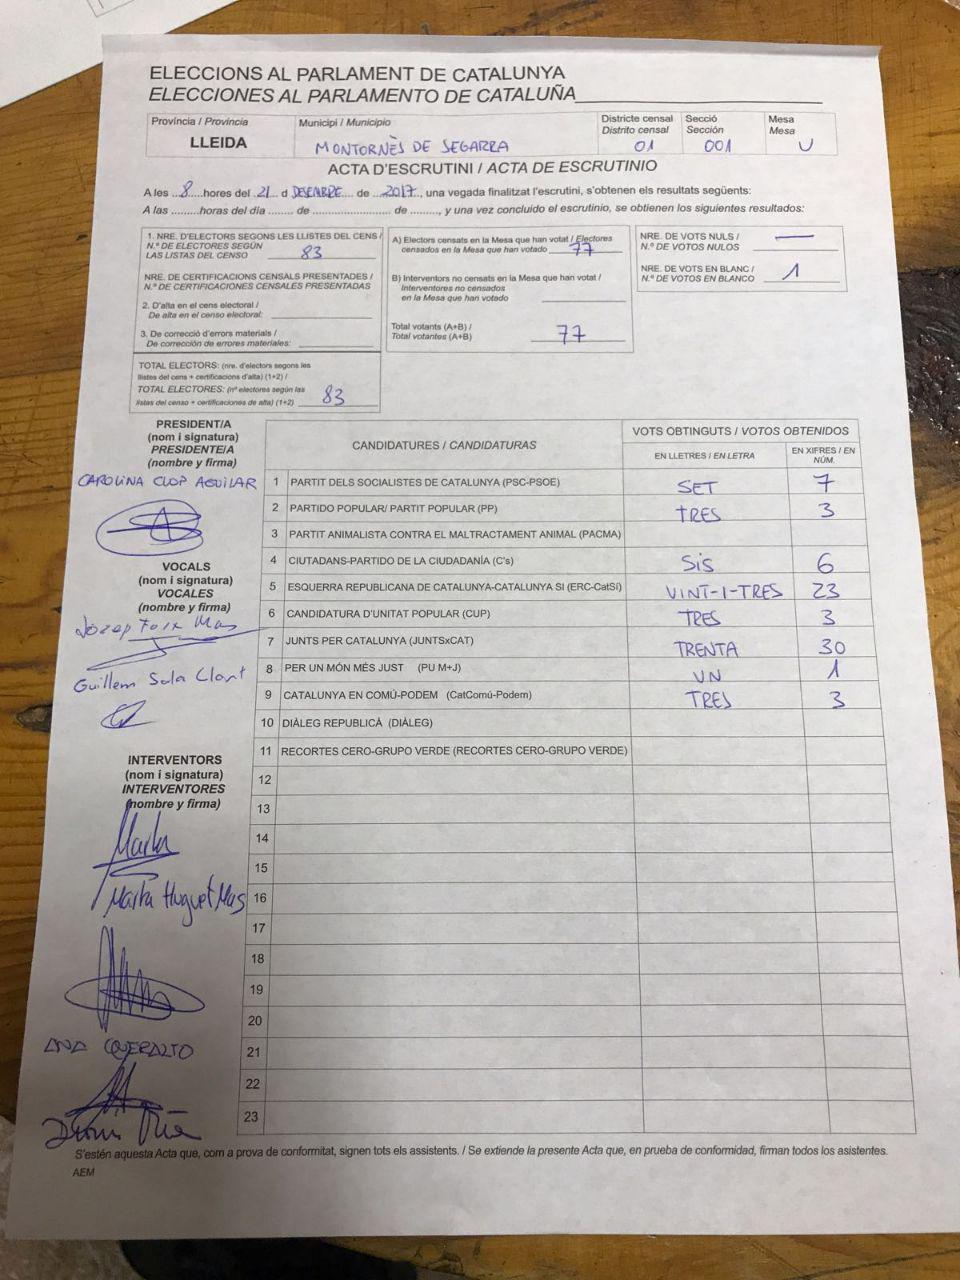 ELECCIONS AL PARLAMENT DE CATALUNYA
ELECCIONES AL PARLAMENTO DE CATALUÑA
Província / Provincia
LLEIDA
Municipi / Municipio
MONTORNÈS DE SEGARRA
Districte censal
Distrito censal
01
Secció
Sección
001
Mesa
Mesa
U
ACTA D'ESCRUTINI / ACTA DE ESCRUTINIO
A les ..8....hores del .21. d DESEMBRE.... de ..2017.., una vegada finalitzat l'escrutini, s'obtenen els resultats següents:
A las .........horas del día ....... de ....................... de ........, y una vez concluido el escrutinio, se obtienen los siguientes resultados:
1. NRE. D'ELECTORS SEGONS LES LLISTES DEL CENS /
N.º DE ELECTORES SEGÚN
LAS LISTAS DEL CENSO 83
NRE. DE CERTIFICACIONS CENSALS PRESENTADES /
N.º DE CERTIFICACIONES CENSALES PRESENTADAS
2. D'alta en el cens electoral /
De alta en el censo electoral:
3. De correcció d'errors materials /
De corrección de errores materiales:
TOTAL ELECTORS: (nre. d'electors segons les
llistes del cens + certificacions d'alta) (1+2) /
TOTAL ELECTORES: (nº electores según las
listas del censo + certificaciones de alta) (1+2) 83
A) Electors censats en la Mesa que han votat / Electores
censados en la Mesa que han votado 77
B) Interventors no censats en la Mesa que han votat /
Interventores no censados
en la Mesa que han votado
Total votants (A+B) /
Total votantes (A+B) 77
NRE. DE VOTS NULS /
N.º DE VOTOS NULOS —
NRE. DE VOTS EN BLANC /
N.º DE VOTOS EN BLANCO 1
PRESIDENT/A
(nom i signatura)
PRESIDENTE/A
(nombre y firma)
CAROLINA CLOP AGUILAR
VOCALS
(nom i signatura)
VOCALES
(nombre y firma)
Josep Foix Mas
Guillem Sala Clart
INTERVENTORS
(nom i signatura)
INTERVENTORES
(nombre y firma)
Marta
Marta Huguet Mas
ANA QUERALTO
CANDIDATURES / CANDIDATURAS
VOTS OBTINGUTS / VOTOS OBTENIDOS
EN LLETRES / EN LETRA
EN XIFRES / EN NÚM.
1 PARTIT DELS SOCIALISTES DE CATALUNYA (PSC-PSOE) SET 7
2 PARTIDO POPULAR/ PARTIT POPULAR (PP) TRES 3
3 PARTIT ANIMALISTA CONTRA EL MALTRACTAMENT ANIMAL (PACMA)
4 CIUTADANS-PARTIDO DE LA CIUDADANÍA (C's) SIS 6
5 ESQUERRA REPUBLICANA DE CATALUNYA-CATALUNYA SÍ (ERC-CatSí) VINT-I-TRES 23
6 CANDIDATURA D'UNITAT POPULAR (CUP) TRES 3
7 JUNTS PER CATALUNYA (JUNTSxCAT) TRENTA 30
8 PER UN MÓN MÉS JUST (PU M+J) UN 1
9 CATALUNYA EN COMÚ-PODEM (CatComú-Podem) TRES 3
10 DIÀLEG REPUBLICÀ (DIÀLEG)
11 RECORTES CERO-GRUPO VERDE (RECORTES CERO-GRUPO VERDE)
12
13
14
15
16
17
18
19
20
21
22
23
S'estén aquesta Acta que, com a prova de conformitat, signen tots els assistents. / Se extiende la presente Acta que, en prueba de conformidad, firman todos los asistentes.
AEM